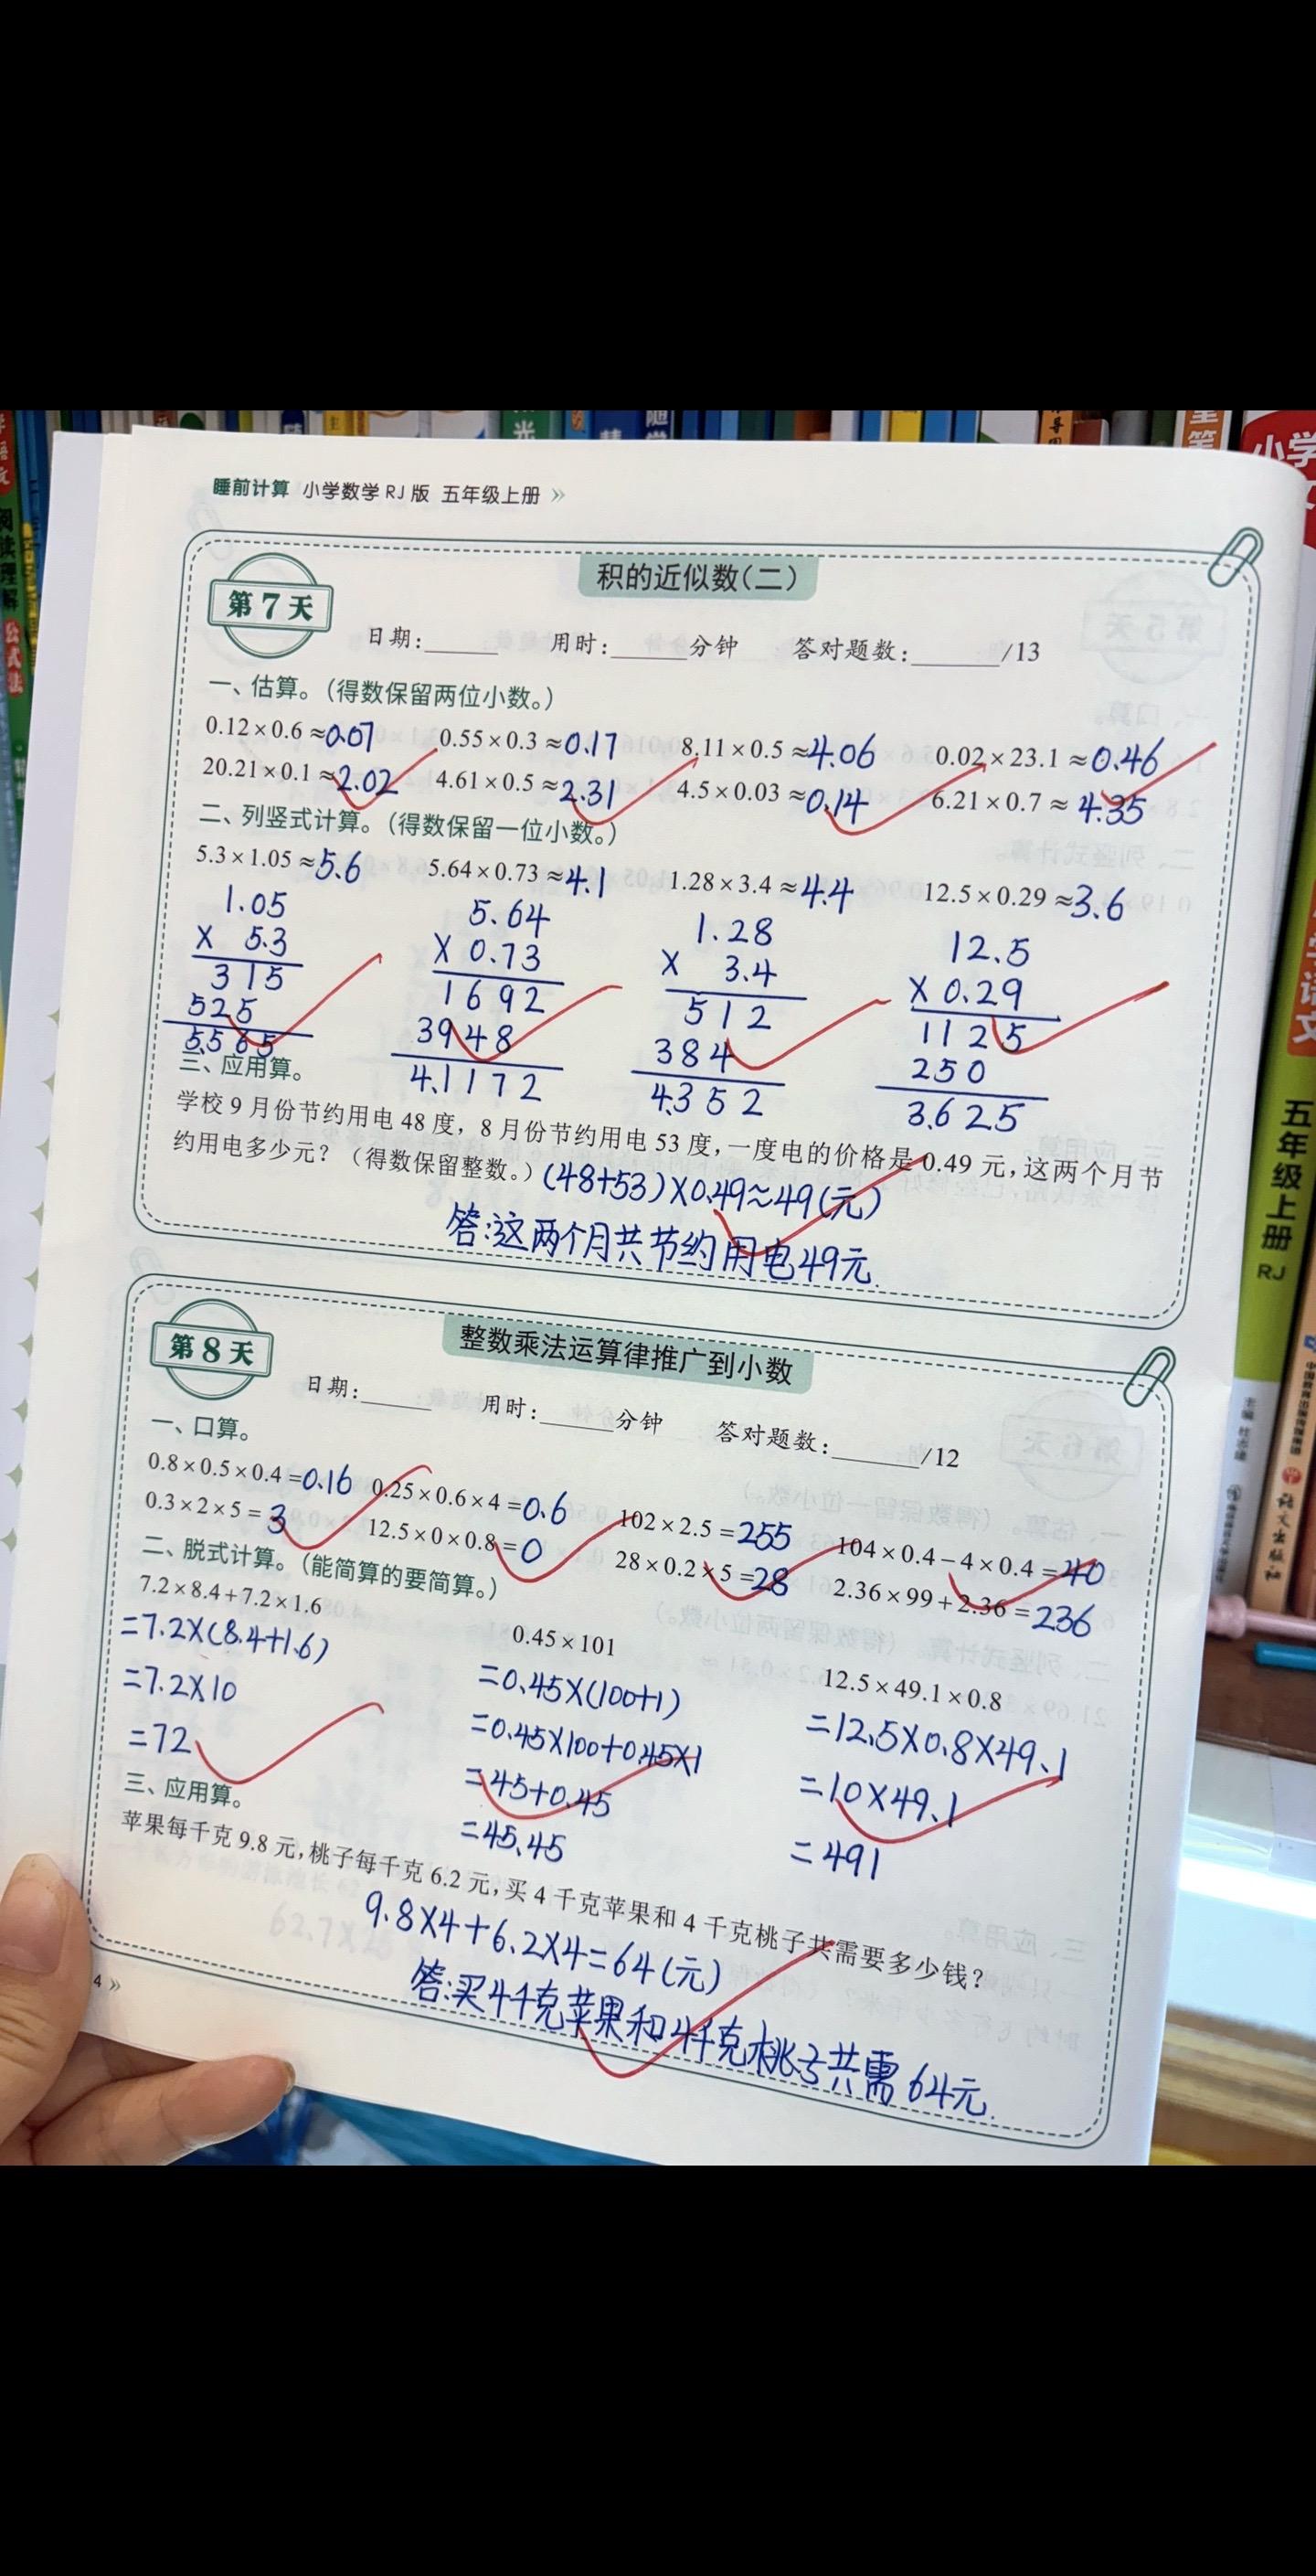 睡前计算 小学数学 RJ 版 五年级上册 »
积的近似数(二)
第7天
日期:______ 用时:______分钟 答对题数:______/13
一、估算。(得数保留两位小数。)
0.12×0.6≈0.07 0.55×0.3≈0.17 8.11×0.5≈4.06 0.02×23.1≈0.46
20.21×0.1≈2.02 4.61×0.5≈2.31 4.5×0.03≈0.14 6.21×0.7≈4.35
二、列竖式计算。(得数保留一位小数。)
5.3×1.05≈5.6 5.64×0.73≈4.1 1.28×3.4≈4.4 12.5×0.29≈3.6
1.05 5.64 1.28 12.5
× 5.3 × 0.73 × 3.4 × 0.29
315 1692 512 1125
525 3948 384 250
5.565 4.1172 4.352 3.625
三、应用算。
学校9月份节约用电48度,8月份节约用电53度,一度电的价格是0.49元,这两个月节
约用电多少元?(得数保留整数。)(48+53)×0.49≈49(元)
答:这两个月共节约用电49元.
整数乘法运算律推广到小数
第8天
日期:______ 用时:______分钟 答对题数:______/12
一、口算。
0.8×0.5×0.4=0.16 0.25×0.6×4=0.6 102×2.5=255 104×0.4-4×0.4=40
0.3×2×5=3 12.5×0×0.8=0 28×0.2×5=28 2.36×99+2.36=236
二、脱式计算。(能简算的要简算。)
7.2×8.4+7.2×1.6 0.45×101 12.5×49.1×0.8
=7.2×(8.4+1.6) =0.45×(100+1) =12.5×0.8×49.1
=7.2×10 =0.45×100+0.45×1 =10×49.1
=72 =45+0.45 =491
=45.45
三、应用算。
苹果每千克9.8元,桃子每千克6.2元,买4千克苹果和4千克桃子共需要多少钱?
9.8×4+6.2×4=64(元)
答:买4千克苹果和4千克桃子共需64元.
4 »
五年级上册
RJ